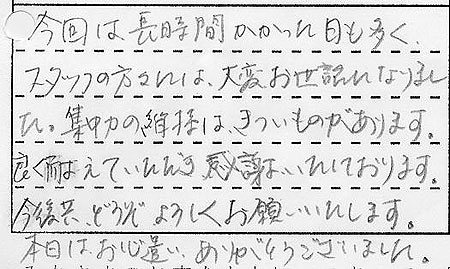 今回は長時間かかった日も多く、
スタッフの方々には、大変お世話になりまし
た。集中力の維持は、きついものがあります。
良く耐えていただき感謝はいたしております。
今後共、どうぞよろしくお願いいたします。
本日はお心遣い、ありがとうございました。